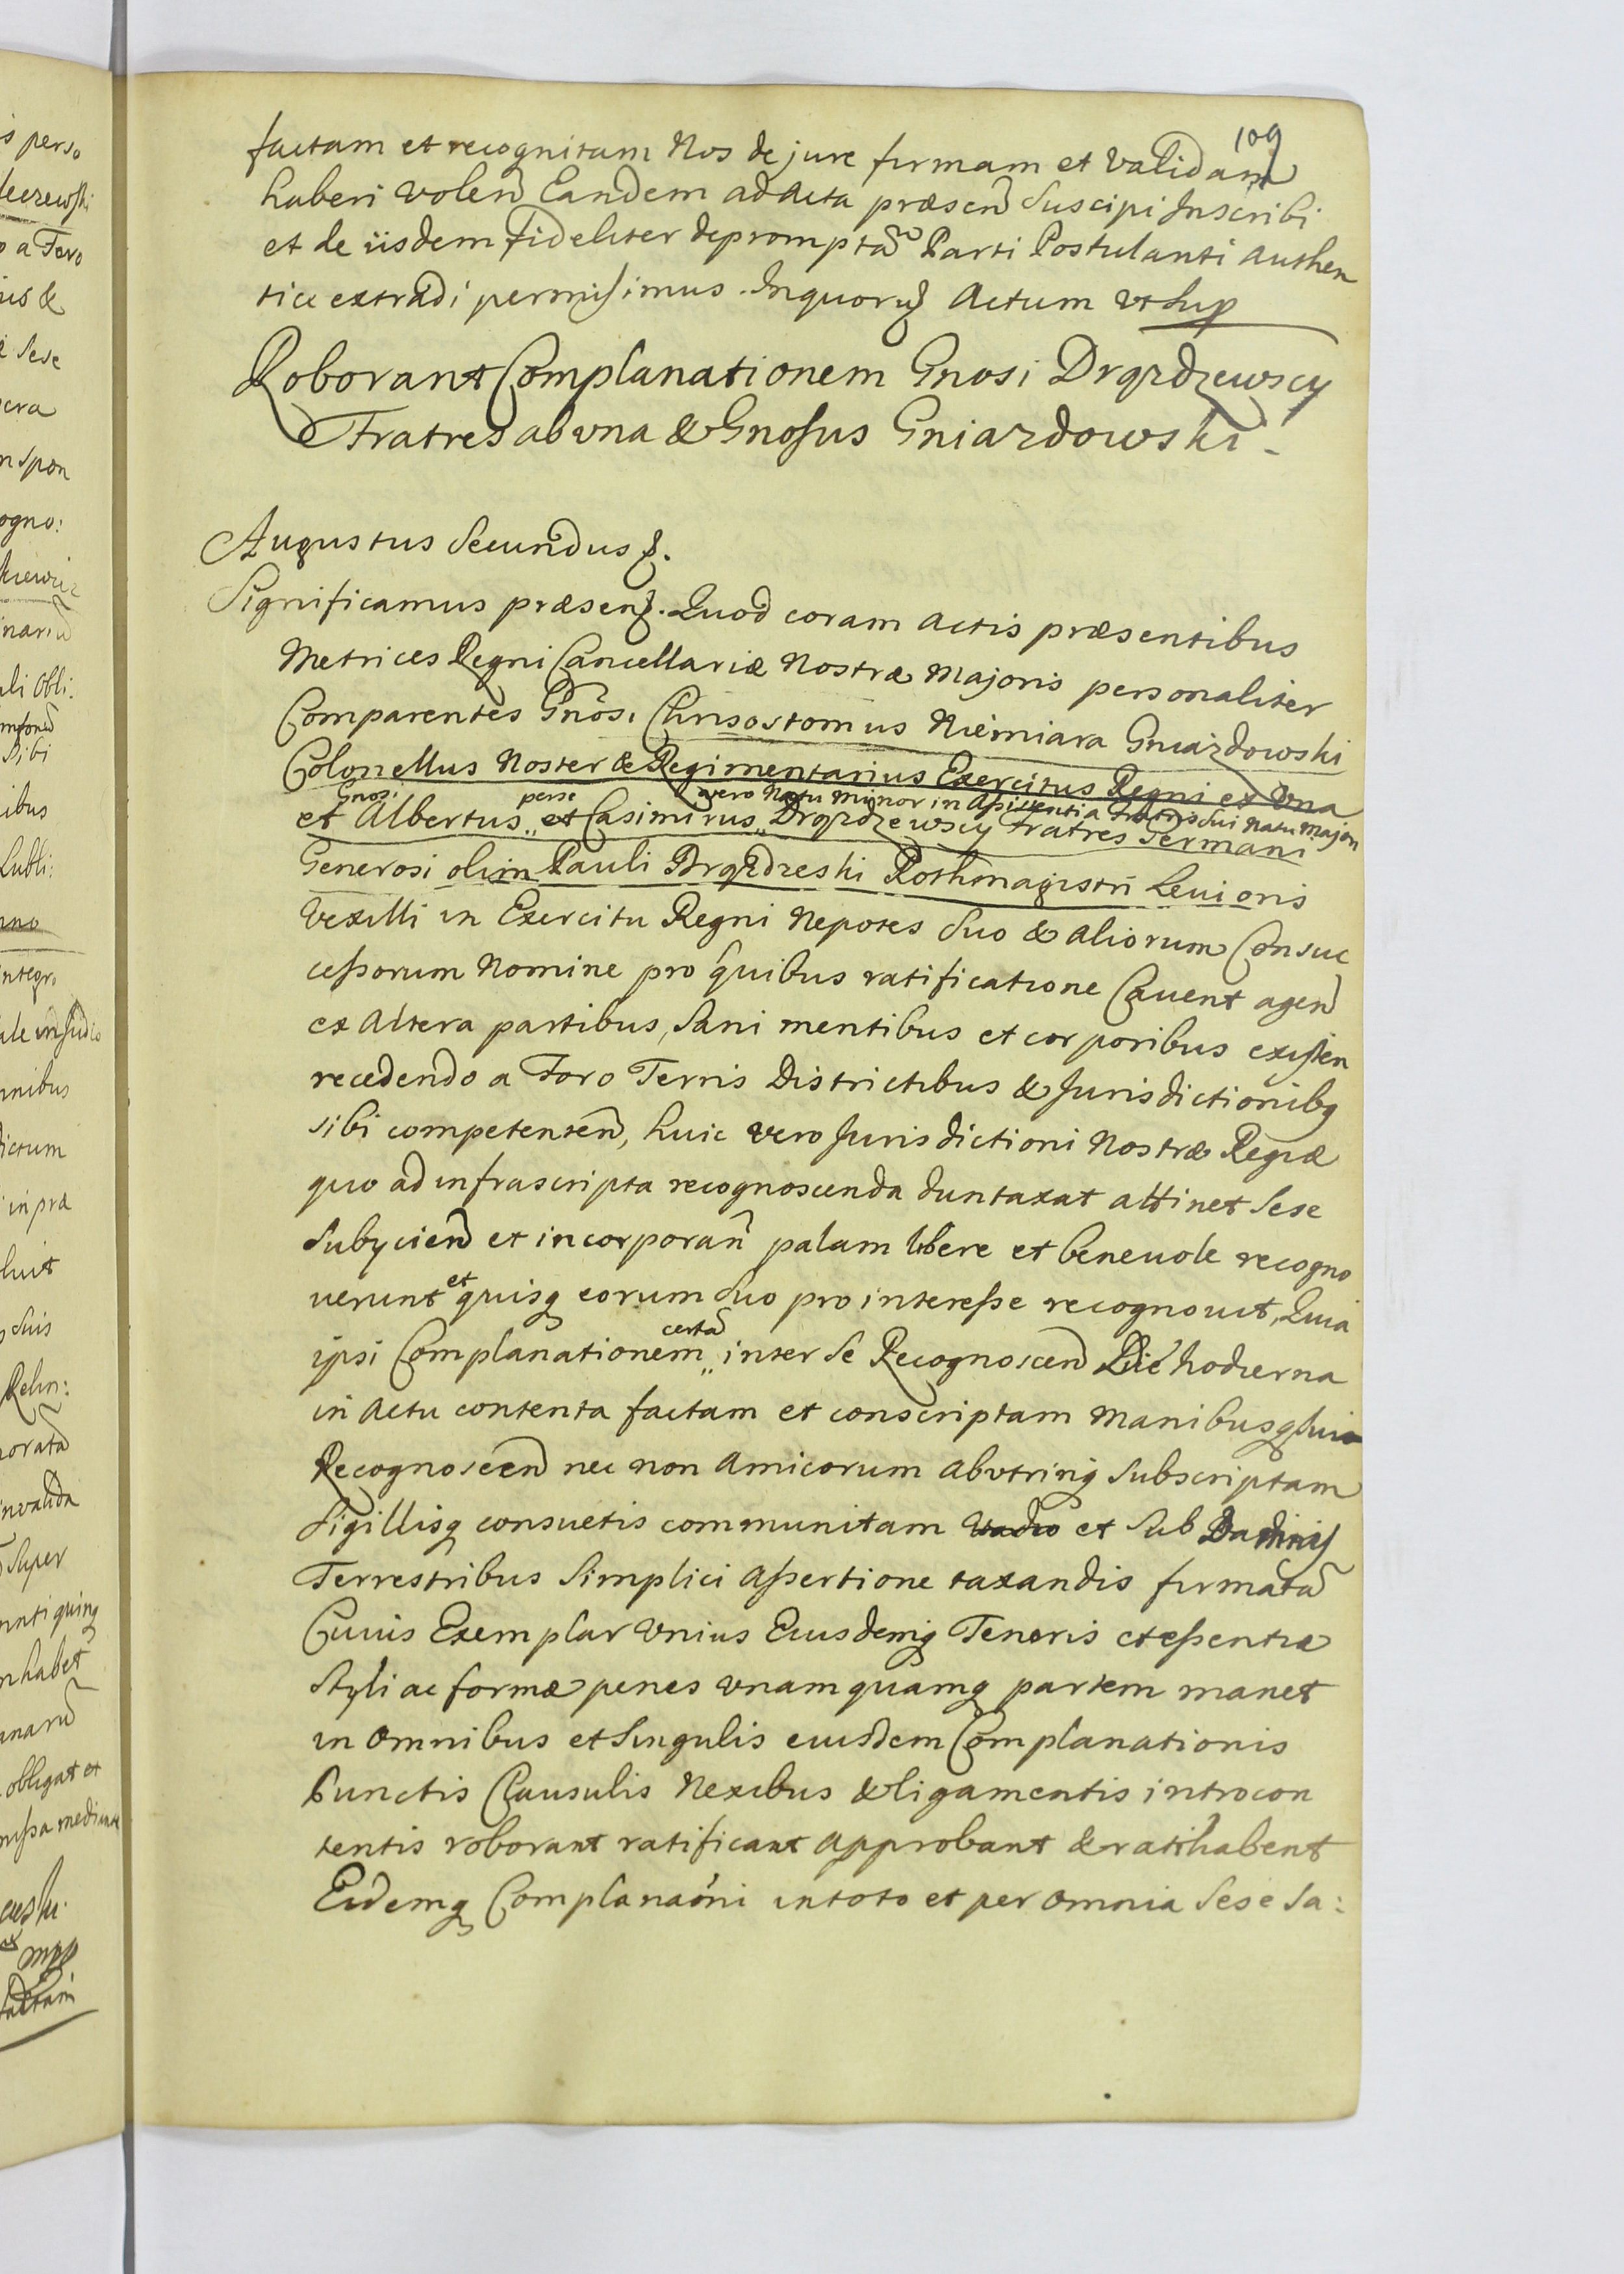 109
factam et recognitam Nos de jure firmam et validam
haberi volen Eandem ad Acta præsen Suscipi Inscribi
et de iisdem fideliter depromptã Parti Postulanti Authen
tice extradi permisimus. In quoru Actum ut Sup
Roborant Complanationem Gnosi Drązdzewscy
Fratres ab una & Gnosus Gniazdowski.
Augustus Secundus &.
Significamus præsen. Quod coram Actis præsentibus
Metrices Regni Cancellariæ Nostræ Majoris personaliter
Comparentes Gnõsi Chrisostomus Niemiara Gniazdowski
Colonellus Noster & Regimentarius Exercitus Regni ex Una
Gnosi perse vero Natu Minor in Assistentia Fratris Sui Natu Majori
et Albertus,, et Casimirus,, Drązdzewscy Fratres Germani
Generosi olim Pauli Drązdzeski Rothmagistri Levioris
Vexilli in Exercitu Regni Nepotes Suo & Aliorum Consuc
cessorum Nomine pro quibus ratificatione Cavent agen
ex Altera partibus, Sani mentibus et corporibus existen
recedendo a Foro Terris Districtibus & Jurisdictionibq
sibi competenten, huic vero Jurisdictioni Nostræ Regiæ
quo ad infrascripta recognoscenda duntaxat attinet Sese
Subycien et incorporan palam libere et benevole recogno
et
verunt quisq eorum Suo pro interesse recognovit, Quia
certã
ipsi Complanationem,, inter Se Recognoscen Die hodierna
in Actu contenta factam et conscriptam Manibusq Suis
Recognoscen nec non Amicorum Ab utrinq Subscriptam
Sigillisq consuetis communitam Vadio et Sub Damnis
Terrestribus Simplici Assertione taxandis firmatã
Cuius Exemplar Unius Eiusdemq Tenoris et essentiæ
Styli ac formæ penes unamquamq partem manet
in Omnibus et Singulis eiusdem Complanationis
Punctis Clausulis Nexibus & ligamentis introcon
tentis roborant ratificant Approbant & ratihabent
Eidemq Complanaõni in toto et per Omnia Sese Sa: